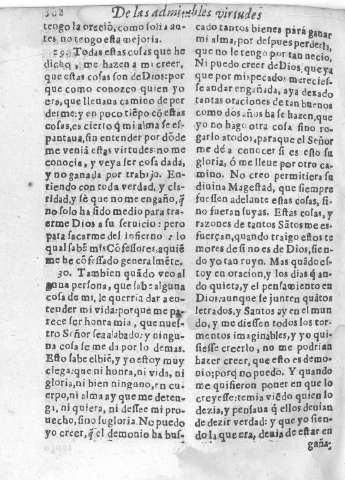 De las admirables virtudes
tengo la oreciõ, como solia an-
tes, no tengo esta mejoria.
29. Todas estas cosas que he
dicho, me hazen a mi creer,
que estas cosas son de Dios: por
que como conozco quien yo
era, que lleuaua camino de per
derme: y en poco tiẽpo cõ estas
cosas, es cierto mi alma se es-
pantaua, sin entender por dõde
me veniã estas virtudes: no me
conocia, y veya ser cosa dada,
y no ganada por trabajo. En-
tiendo con toda verdad, y cla-
ridad, y sè que no me engaño, q̃
no solo ha sido medio para tra-
erme Dios a su seruicio: pero
para sacarme del infierno: lo
qual sabẽ mis Cõfessores, a quiẽ
me he cõfessado generalmẽte.
30. Tambien quãdo veo al
guna persona, que sabe alguna
cosa de mi, le querria dar a en-
tender mi vida: porque me pa
rece ser honra mia, que nues-
tro Señor sea alabado: y ningu-
na cosa se me da por lo demas.
Esto sabe el biẽ, y yo estoy muy
ciega: que ni honra, ni vida, ni
gloria, ni bien ninguno, en cu-
erpo, ni alma ay que me deten-
ga, ni quiera, ni dessee mi pro-
uecho, sino su gloria. No puedo
yo creer, q̃ el demonio ha bus-
cado tantos bienes para ganar
mi alma, por despues perderla,
que no le tengo por tan necio,
Ni puedo creer de Dios, que ya
que por mis pecados mereciesse
andar engañada, aya dexado
tantas oraciones de tan buenos
como dos años ha se hazen, que
yo no hago otra cosa sino ro-
garlo a todos, para que el Señor
me dè a conocer si es esto su
gloria, ó me lleue por otro ca-
mino. No creo permitiera su
diuina Magestad, que siempre
fuessen adelante estas cosas, si
no fueran suyas. Estas cosas, y
razones de tantos Sãtos me es-
fuerçan, quando traigo estos te
mores de si no es de Dios, sien-
do yo tan ruyn. Mas quãdo es-
toy en oracion, y los dias q̃ an-
do quieta, y el pensamiento en
Dios: aunque se junten quãtos
letrados, y Santos ay en el mun
do, y me diessen todos los tor-
mentos imaginables, y yo qui-
siesse creerlo, no me podrian
hazer creer, que esto es demo-
nio; porq̃ no puedo. Y quando
me quisieron poner en que lo
creyesse: temia viẽdo quien lo
dezia, y pensaua q̃ ellos deuian
de dezir verdad: y que yo sien-
do la que era, deuia de estar en
gaña-